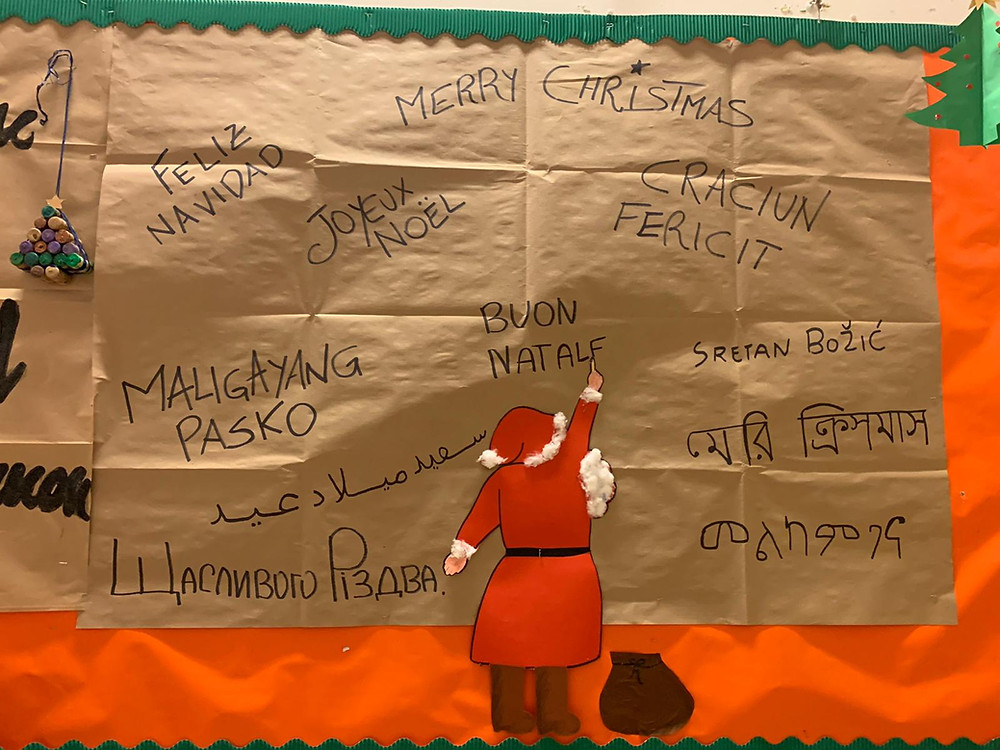 MERRY CHRISTMAS
FELIZ
NAVIDAD
JOYEUX
NOËL
CRACIUN
FERICIT
BUON
NATALE
SRETAN BOŽIĆ
MALIGAYANG
PASKO
মেরি ক্রিসমাস
سعيد ميلاد عيد
መልካምገና
Щасливого Різдва.